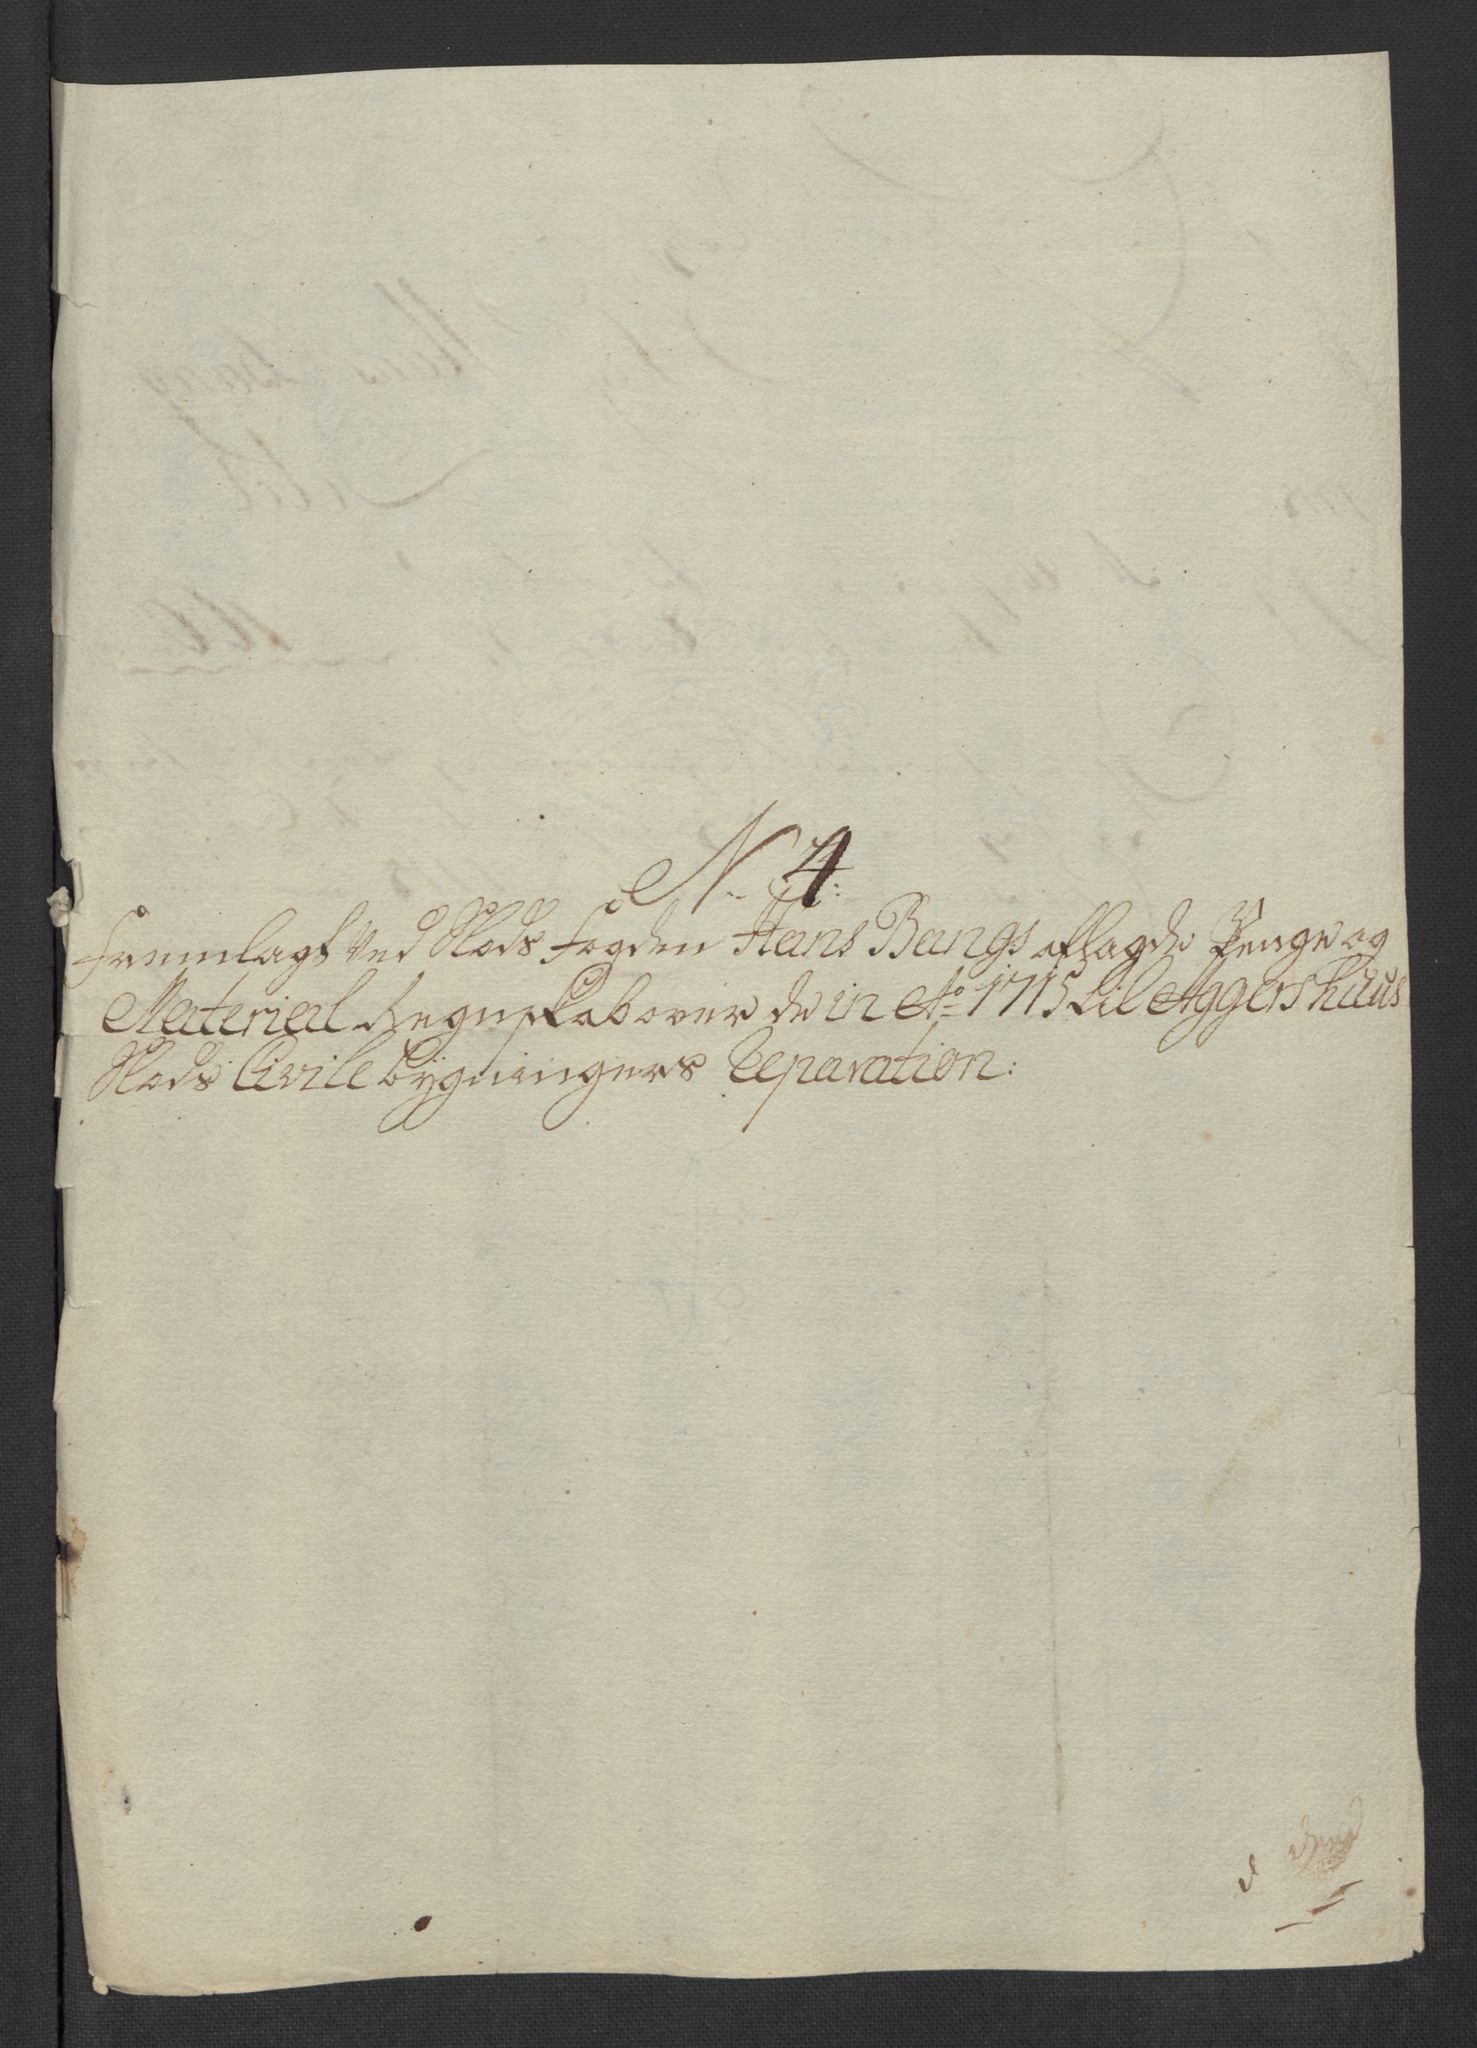 N. 4:
Fremlagt Ved Slods Fogden Hans Bangs aflagde Penge og
Material Regnskab over de in Ao 1715 til Aggershuus
Slods Civile bygningers Reparation: